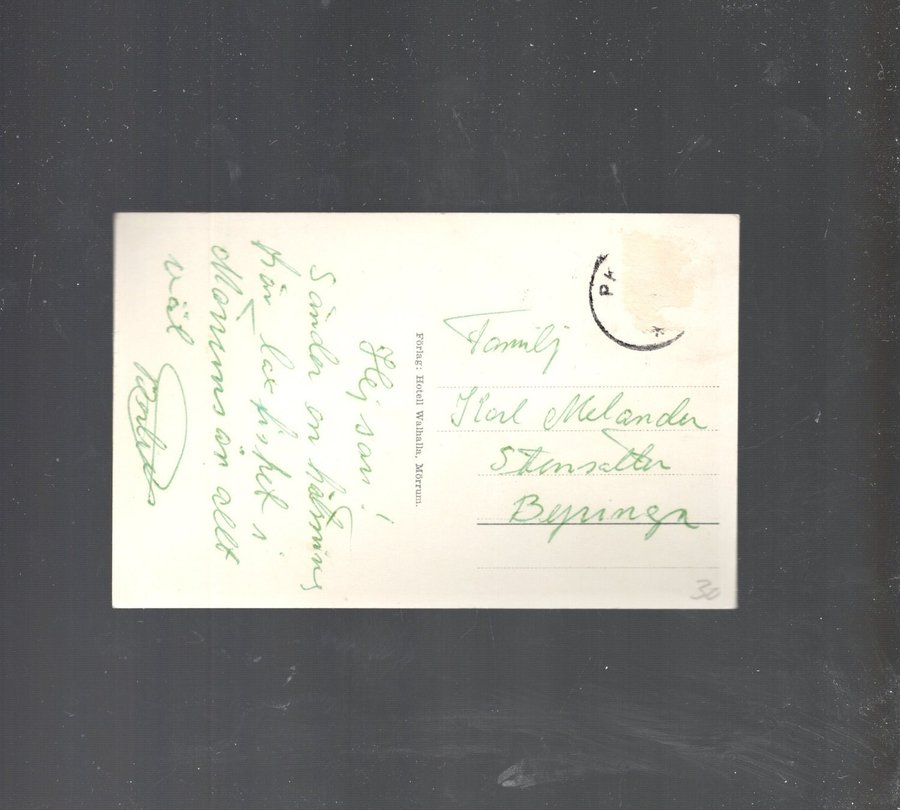 Hej san!
Sänder en hälsning
från laxfisket i
Mörrums är allt
väl
Förlag: Hotell Walhalla, Mörrum.
Familj
Karl Melander
Stensätter
Bepinge
PA
30